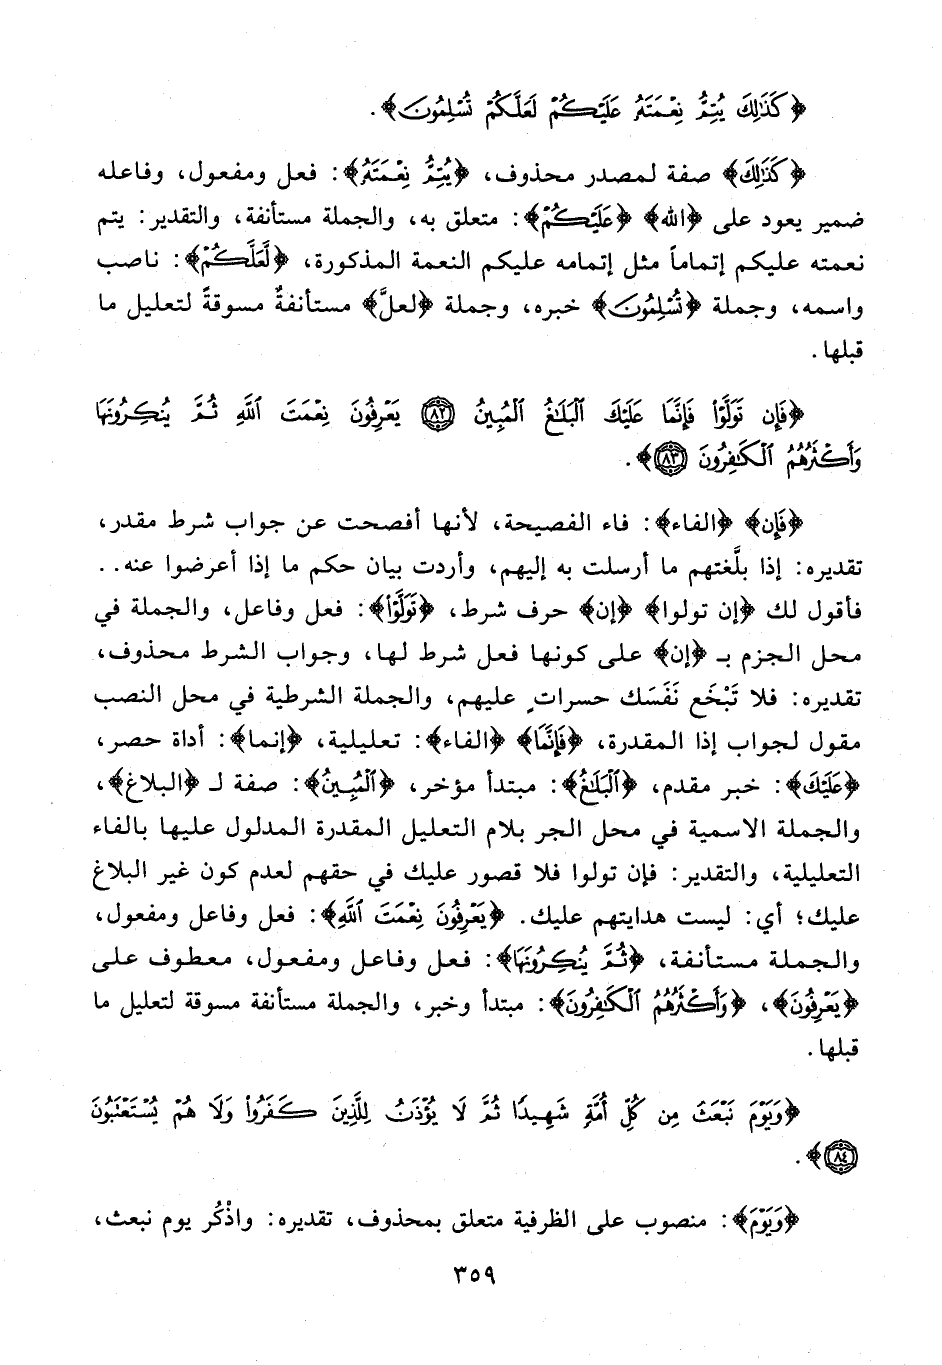 ﴿كَذَٰلِكَ يُتِمُّ نِعْمَتَهُۥ عَلَيْكُمْ لَعَلَّكُمْ تُسْلِمُونَ﴾.
﴿كَذَٰلِكَ﴾ صفة لمصدر محذوف، ﴿يُتِمُّ نِعْمَتَهُۥ﴾: فعل ومفعول، وفاعله
ضمير يعود على ﴿الله﴾ ﴿عَلَيْكُمْ﴾: متعلق به، والجملة مستأنفة، والتقدير: يتم
نعمته عليكم إتماماً مثل إتمامه عليكم النعمة المذكورة، ﴿لَعَلَّكُمْ﴾: ناصب
واسمه، وجملة ﴿تُسْلِمُونَ﴾ خبره، وجملة ﴿لعلَّ﴾ مستأنفةٌ مسوقةً لتعليل ما
قبلها.
﴿فَإِن تَوَلَّوْا۟ فَإِنَّمَا عَلَيْكَ ٱلْبَلَٰغُ ٱلْمُبِينُ ٨٢ يَعْرِفُونَ نِعْمَتَ ٱللَّهِ ثُمَّ يُنكِرُونَهَا
وَأَكْثَرُهُمُ ٱلْكَٰفِرُونَ ٨٣﴾.
﴿فَإِن﴾ ﴿الفاء﴾: فاء الفصيحة، لأنها أفصحت عن جواب شرط مقدر،
تقديره: إذا بلَّغتهم ما أرسلت به إليهم، وأردت بيان حكم ما إذا أعرضوا عنه..
فأقول لك ﴿إن تولوا﴾ ﴿إن﴾ حرف شرط، ﴿تَوَلَّوْا۟﴾: فعل وفاعل، والجملة في
محل الجزم بـ ﴿إن﴾ على كونها فعل شرط لها، وجواب الشرط محذوف،
تقديره: فلا تَبْخَع نَفَسَك حسراتٍ عليهم، والجملة الشرطية في محل النصب
مقول لجواب إذا المقدرة، ﴿فَإِنَّمَا﴾ ﴿الفاء﴾: تعليلية، ﴿إنما﴾: أداة حصر،
﴿عَلَيْكَ﴾: خبر مقدم، ﴿ٱلْبَلَٰغُ﴾: مبتدأ مؤخر، ﴿ٱلْمُبِينُ﴾: صفة لـ ﴿البلاغ﴾،
والجملة الاسمية في محل الجر بلام التعليل المقدرة المدلول عليها بالفاء
التعليلية، والتقدير: فإن تولوا فلا قصور عليك في حقهم لعدم كون غير البلاغ
عليك؛ أي: ليست هدايتهم عليك. ﴿يَعْرِفُونَ نِعْمَتَ ٱللَّهِ﴾: فعل وفاعل ومفعول،
والجملة مستأنفة، ﴿ثُمَّ يُنكِرُونَهَا﴾: فعل وفاعل ومفعول، معطوف على
﴿يَعْرِفُونَ﴾، ﴿وَأَكْثَرُهُمُ ٱلْكَٰفِرُونَ﴾: مبتدأ وخبر، والجملة مستأنفة مسوقة لتعليل ما
قبلها.
﴿وَيَوْمَ نَبْعَثُ مِن كُلِّ أُمَّةٍ شَهِيدًا ثُمَّ لَا يُؤْذَنُ لِلَّذِينَ كَفَرُوا۟ وَلَا هُمْ يُسْتَعْتَبُونَ
٨٤﴾.
﴿وَيَوْمَ﴾: منصوب على الظرفية متعلق بمحذوف، تقديره: واذْكُر يوم نبعث،
٣٥٩